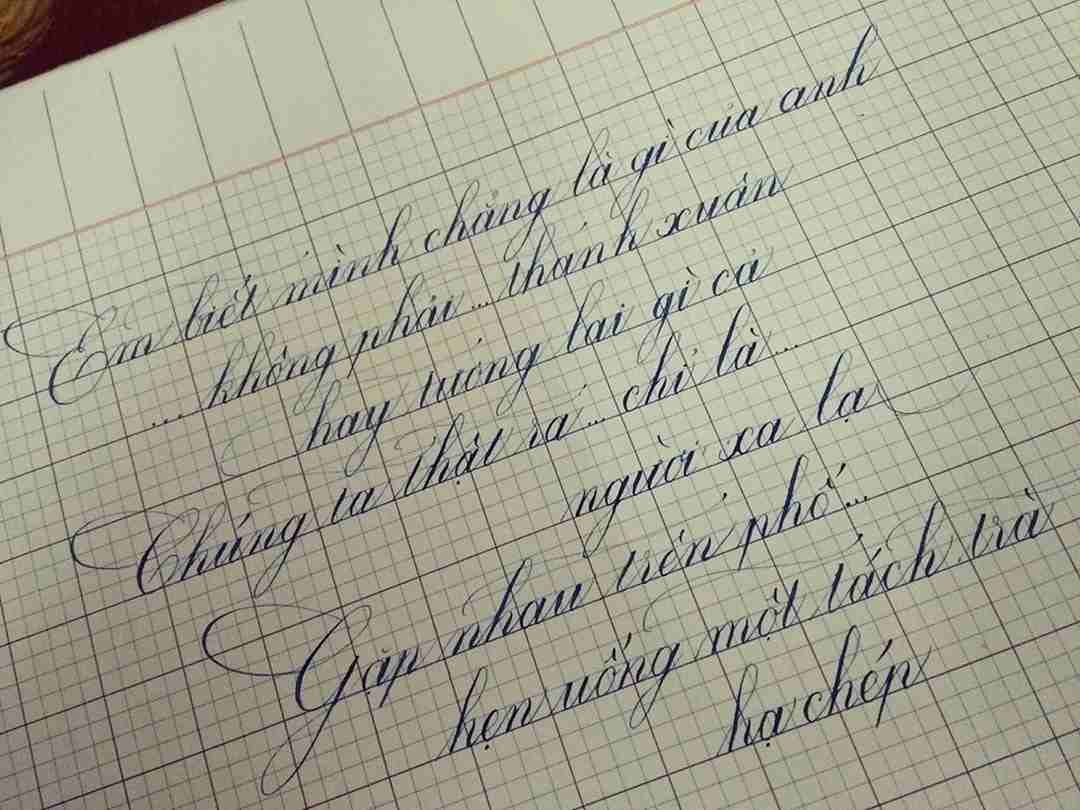 Em biết mình chẳng là gì của anh
... không phải... thanh xuân
hay tương lai gì cả
Chúng ta thật ra... chỉ là...
người xa lạ
Gặp nhau trên phố...
hẹn uống một tách trà
hạ chép